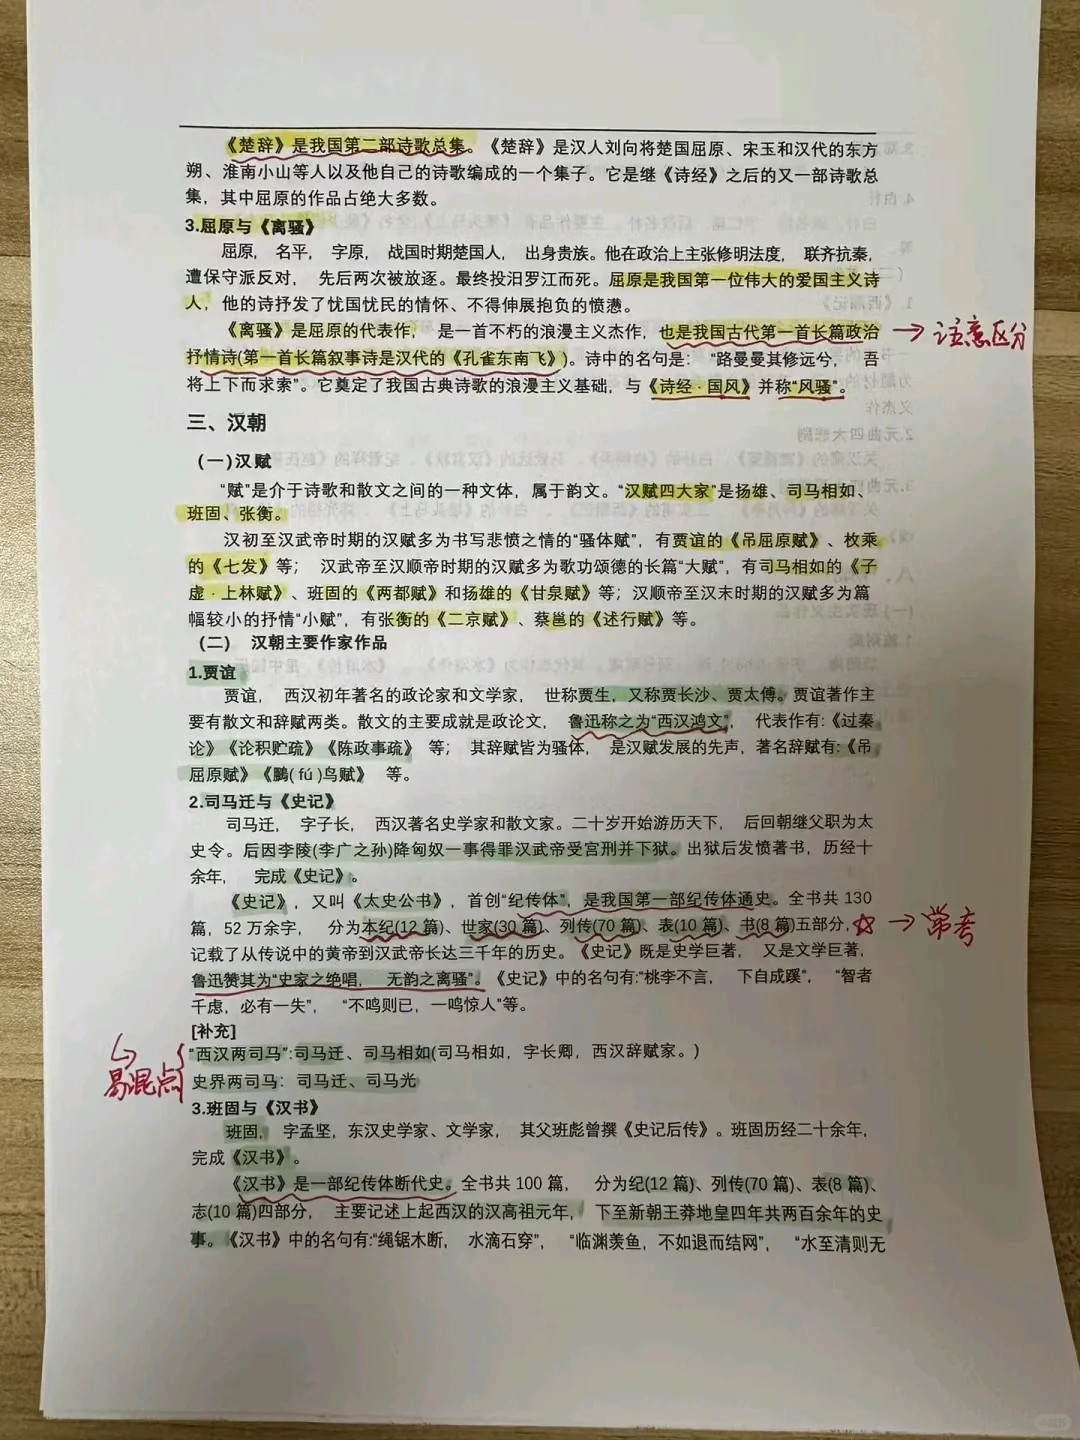 《楚辞》是我国第二部诗歌总集。《楚辞》是汉人刘向将楚国屈原、宋玉和汉代的东方
朔、淮南小山等人以及他自己的诗歌编成的一个集子。它是继《诗经》之后的又一部诗歌总
集，其中屈原的作品占绝大多数。
3.屈原与《离骚》
屈原， 名平， 字原， 战国时期楚国人， 出身贵族。他在政治上主张修明法度， 联齐抗秦，
遭保守派反对， 先后两次被放逐。最终投汨罗江而死。屈原是我国第一位伟大的爱国主义诗
人，他的诗抒发了忧国忧民的情怀、不得伸展抱负的愤懑。
《离骚》是屈原的代表作， 是一首不朽的浪漫主义杰作，也是我国古代第一首长篇政治 → 注意区分
抒情诗(第一首长篇叙事诗是汉代的《孔雀东南飞》)。诗中的名句是： “路曼曼其修远兮， 吾
将上下而求索”。它奠定了我国古典诗歌的浪漫主义基础，与《诗经·国风》并称“风骚”。
三、汉朝
(一)汉赋
“赋”是介于诗歌和散文之间的一种文体，属于韵文。“汉赋四大家”是扬雄、司马相如、
班固、张衡。
汉初至汉武帝时期的汉赋多为书写悲愤之情的“骚体赋”，有贾谊的《吊屈原赋》、枚乘
的《七发》等； 汉武帝至汉顺帝时期的汉赋多为歌功颂德的长篇“大赋”，有司马相如的《子
虚·上林赋》、班固的《两都赋》和扬雄的《甘泉赋》等；汉顺帝至汉末时期的汉赋多为篇
幅较小的抒情“小赋”，有张衡的《二京赋》、蔡邕的《述行赋》等。
(二) 汉朝主要作家作品
1.贾谊
贾谊， 西汉初年著名的政论家和文学家， 世称贾生，又称贾长沙、贾太傅。贾谊著作主
要有散文和辞赋两类。散文的主要成就是政论文， 鲁迅称之为“西汉鸿文”， 代表作有:《过秦
论》《论积贮疏》《陈政事疏》 等； 其辞赋皆为骚体， 是汉赋发展的先声，著名辞赋有:《吊
屈原赋》《鵩( fú )鸟赋》 等。
2.司马迁与《史记》
司马迁， 字子长， 西汉著名史学家和散文家。二十岁开始游历天下， 后回朝继父职为太
史令。后因李陵(李广之孙)降匈奴一事得罪汉武帝受宫刑并下狱。出狱后发愤著书，历经十
余年， 完成《史记》。
《史记》，又叫《太史公书》，首创“纪传体”，是我国第一部纪传体通史。全书共 130
篇，52 万余字， 分为本纪(12 篇)、世家(30 篇)、列传(70 篇)、表(10 篇)、书(8 篇)五部分，☆ → 常考
记载了从传说中的黄帝到汉武帝长达三千年的历史。《史记》既是史学巨著， 又是文学巨著，
鲁迅赞其为“史家之绝唱， 无韵之离骚”。《史记》中的名句有:“桃李不言， 下自成蹊”， “智者
千虑，必有一失”， “不鸣则已，一鸣惊人”等。
[补充]
“西汉两司马”:司马迁、司马相如(司马相如，字长卿，西汉辞赋家。)
易混点
史界两司马：司马迁、司马光
3.班固与《汉书》
班固， 字孟坚，东汉史学家、文学家， 其父班彪曾撰《史记后传》。班固历经二十余年，
完成《汉书》。
《汉书》是一部纪传体断代史。全书共 100 篇， 分为纪(12 篇)、列传(70 篇)、表(8 篇)、
志(10 篇)四部分， 主要记述上起西汉的汉高祖元年， 下至新朝王莽地皇四年共两百余年的史
事。《汉书》中的名句有:“绳锯木断， 水滴石穿”， “临渊羡鱼，不如退而结网”， “水至清则无